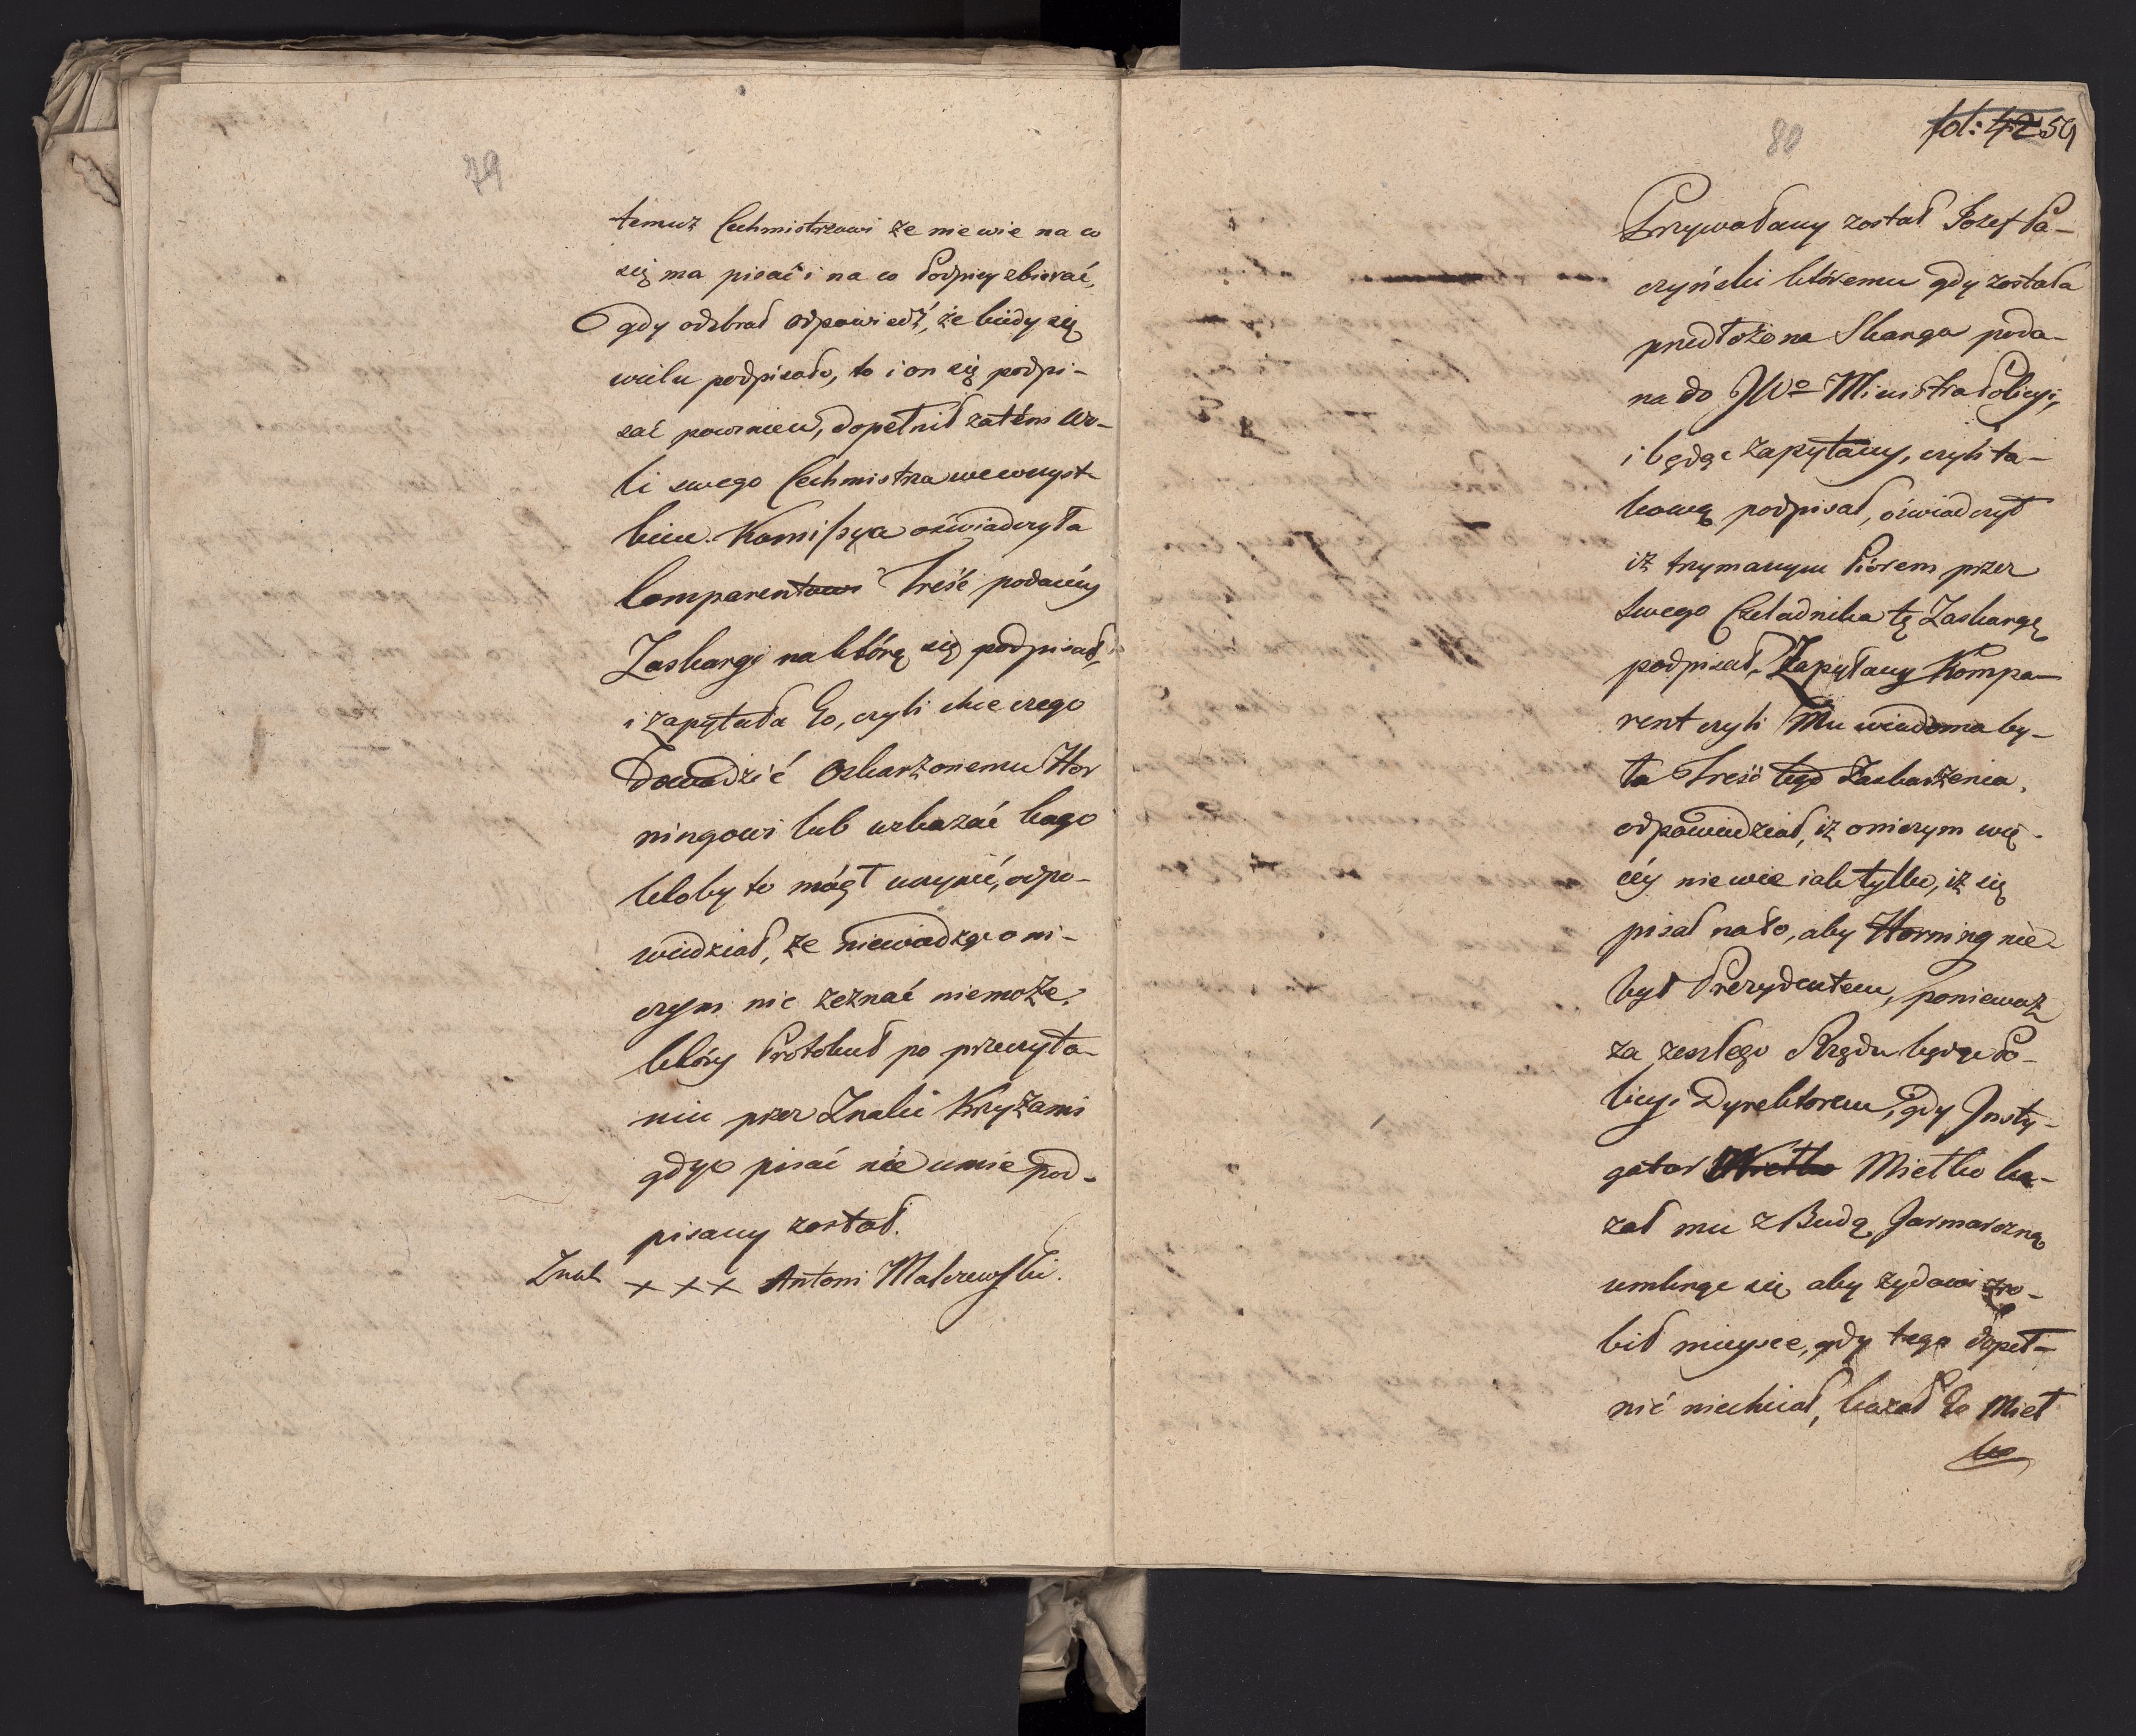 79
temuż Cechmistrzowi że nie wie na co
się ma pisać i na co Podpisy zbierać,
gdy odebrał odpowiedź, że kiedy się
wielu podpisało, to i on się podpi-
sać powinien, dopełnił zatém wo-
li swego Cechmistrza we wszyst-
kiem. Komissya oświadczyła
komparentowi Treść podanéy
Zaskargi na którą się podpisał,
i zapytała Go, czyli chce czego
Dowodzić Oskarżonemu Hor
ningowi lub wskazać kogo
ktoby to mógł uczynić, odpo-
wiedział, że niewiedząc o ni-
czym nic zeznać niemoże.
który Protokuł po przeczyta-
niu przez Znaki Krzyżami
gdyż pisać nie umie pod-
pisany został.
Znak +++ Antoni Malczewski.
80
fol: 42 59
Przywołany został Jozef Pa-
czyński któremu gdy została
przedłożona Skarga poda-
na do JWo Ministra Policyi,
i będąc zapytany, czyli ta-
kową podpisał, oświadczył
iż trzymanym Piórem przez
swego Czeladnika tę Zaskargę
podpisał. Zapytany Kompa-
rent czyli Mu wiadoma by-
ła Treść tego Zaskarżenia,
odpowiedział, iż oniczym wię-
céy nie wie iak tylko, iż się
pisał na to, aby Horning nie
był Prezydentem, ponieważ
za zeszłego Rządu będąc Po-
licyi Dyrektorem, gdy Insty-
gator Mietko Mietko ka-
zał mu z Budą Jarmarczną
umknąć się aby żydowi zro-
bił mieysce, gdy tego dopeł-
nić niechciał, kazał Go Miet
ko